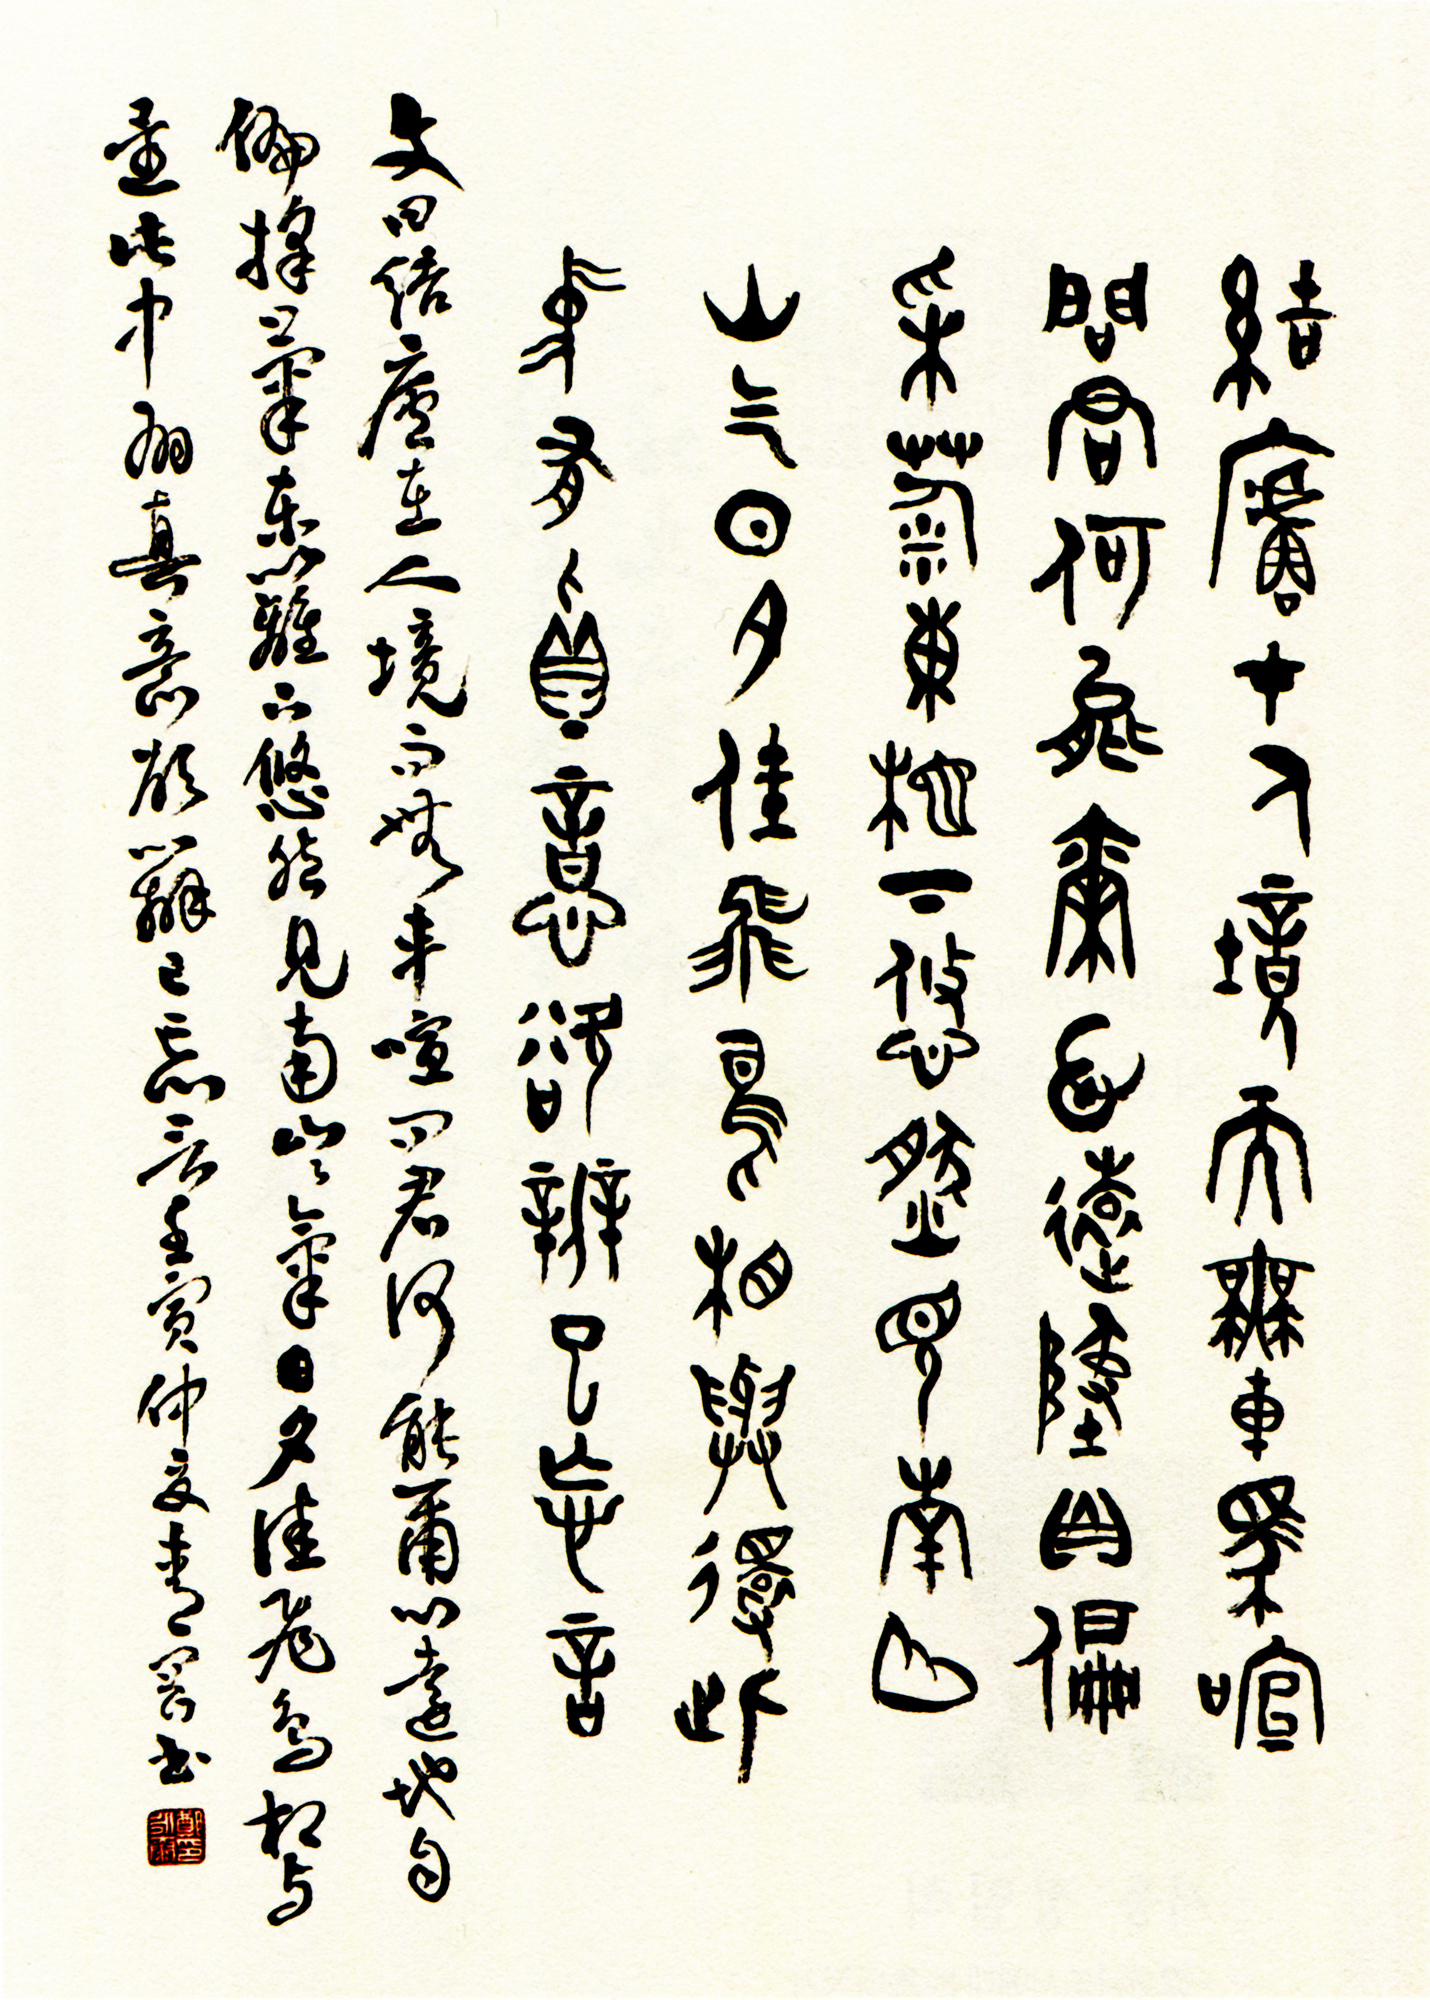 結廬在人境而無車馬喧
問君何能爾心遠地自偏
采菊東籬下悠然見南山
山气日夕佳飛鳥相與還此
中有真意欲辨已忘言
文曰結廬在人境而無車喧問君何能爾心遠地自
偏採菊東籬下悠然見南山〻氣日夕佳飛鳥相与
還此中有真意欲辯已忘言壬寅仲夏青書